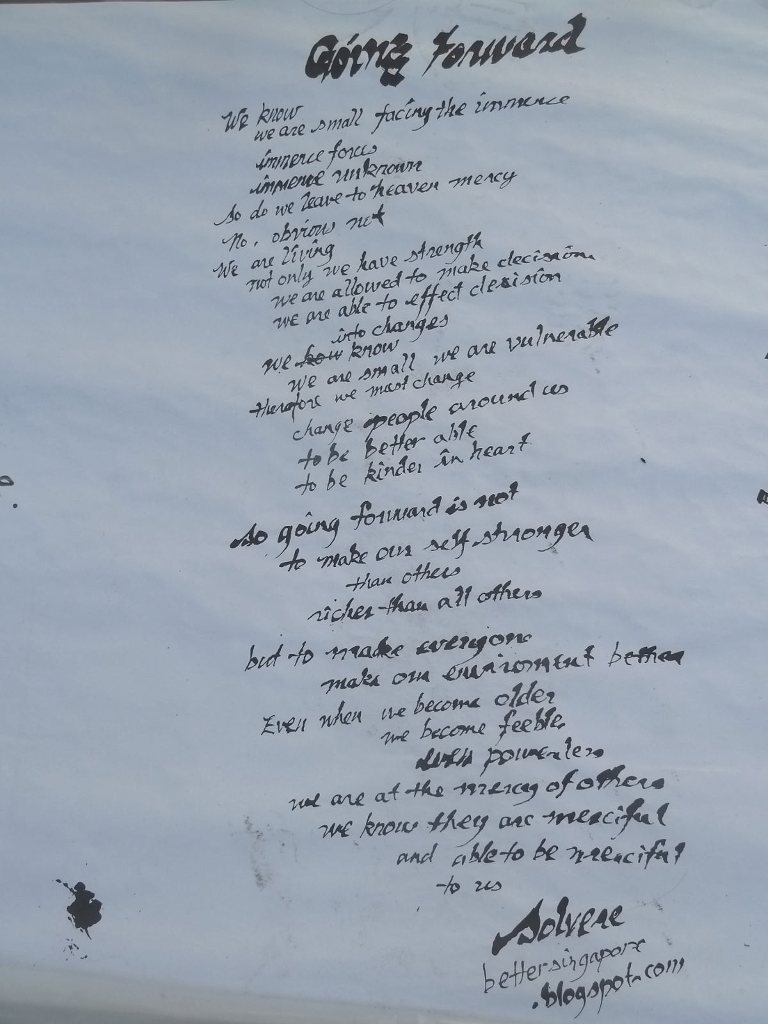 Going Forward
We know
we are small facing the immence
immence forces
immence unknown
so do we leave to heaven mercy
No, obvious not
We are living
not only we have strength
we are allowed to make decision
we are able to effect decision
into changes
we know
We are small we are vulnerable
therefore we must change
change people around us
to be better able
to be kinder in heart
so going forward is not
to make our self stronger
than others
richer than all others
but to make everyone
make our enviroment better
Even when we become older
we become feeble
even powerless
we are at the mercy of others
we know they are merciful
and able to be merciful
to us
Solvere
bettersingapore
.blogspot.com